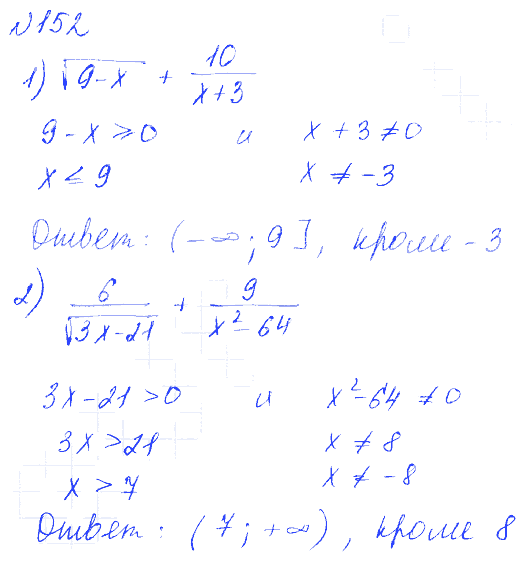 №152
1) √(9-x) + 10/(x+3)
9-x ≥ 0 и x+3 ≠ 0
x ≤ 9 x ≠ -3
Ответ: (-∞; 9], кроме -3
2) 6/√(3x-21) + 9/(x²-64)
3x-21 > 0 и x²-64 ≠ 0
3x > 21 x ≠ 8
x > 7 x ≠ -8
Ответ: (7; +∞), кроме 8